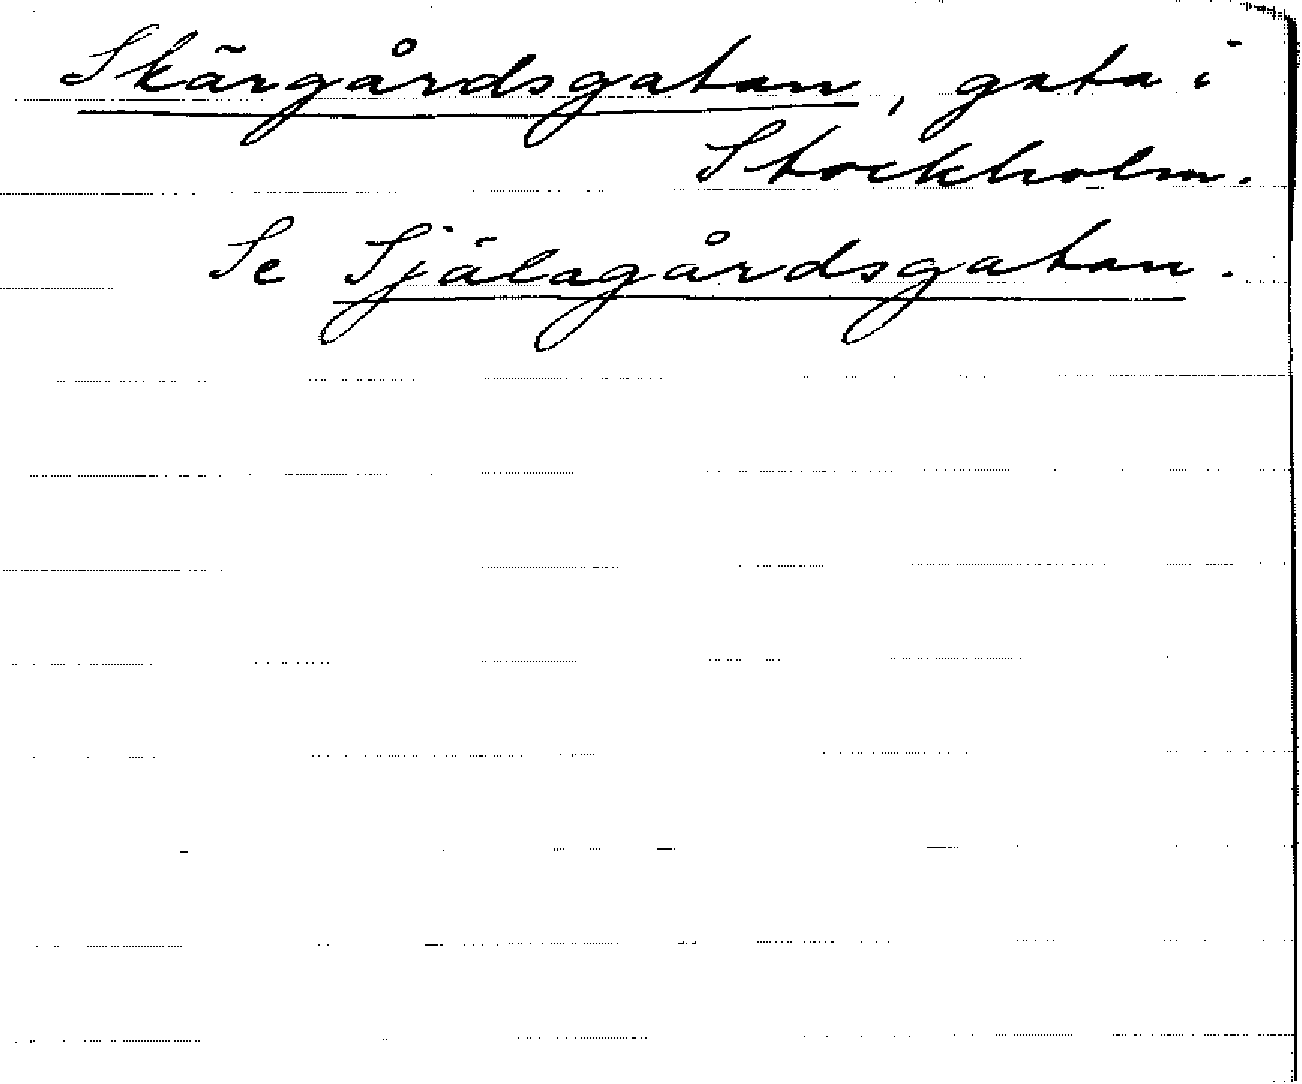 Skärgårdsgatan, gata i
Stockholm.
Se Själagårdsgatan.